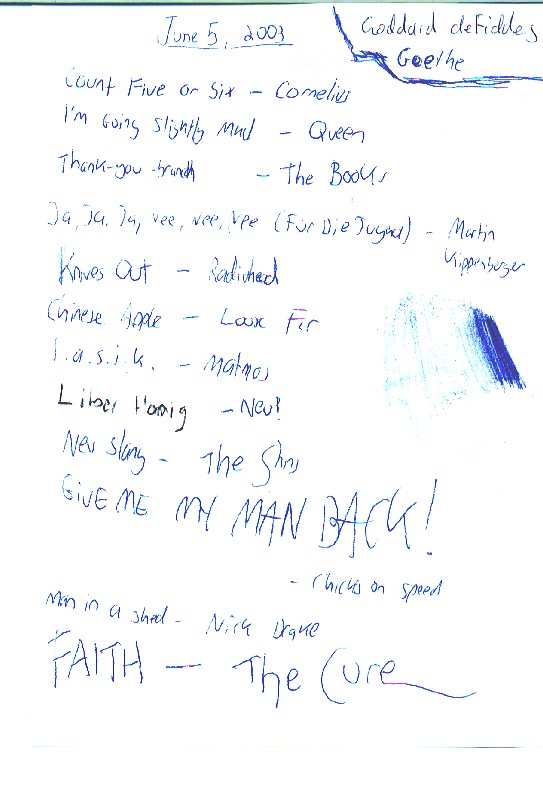 June 5, 2003
Goddard deFiddes
Goethe
Count Five or Six - Cornelius
I'm Going Slightly Mad - Queen
Thank-you-branch - The Books
Ja, Ja, Ja, Nee, Nee, Nee (Für Die Jugend) - Martin
Kippenberger
Knives Out - Radiohead
Chinese Apple - Loose Fur
l.a.s.i.k. - Matmos
Lieber Honig - Neu!
New Slang - The Shins
GIVE ME MY MAN BACK!
- Chicks on Speed
Man in a shed - Nick Drake
FAITH - The Cure